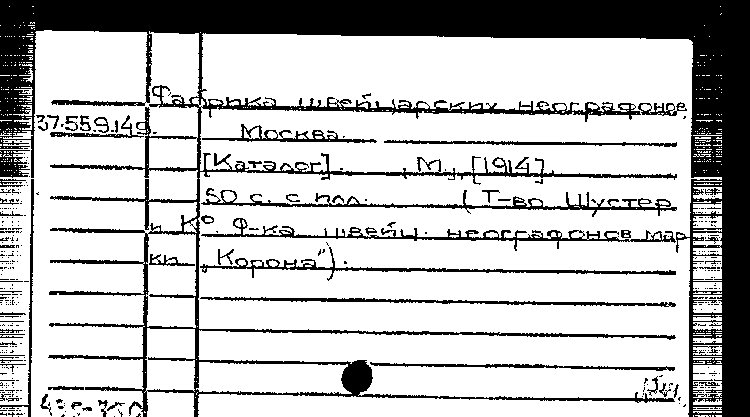 Фабрика швейцарских неографонов.
37.55.9.149. Москва.
[Каталог]. , М., [1914].
50 с. с илл. (Т-во Шустер
и К°. Ф-ка швейц. неографонов мар
ки „Корона").